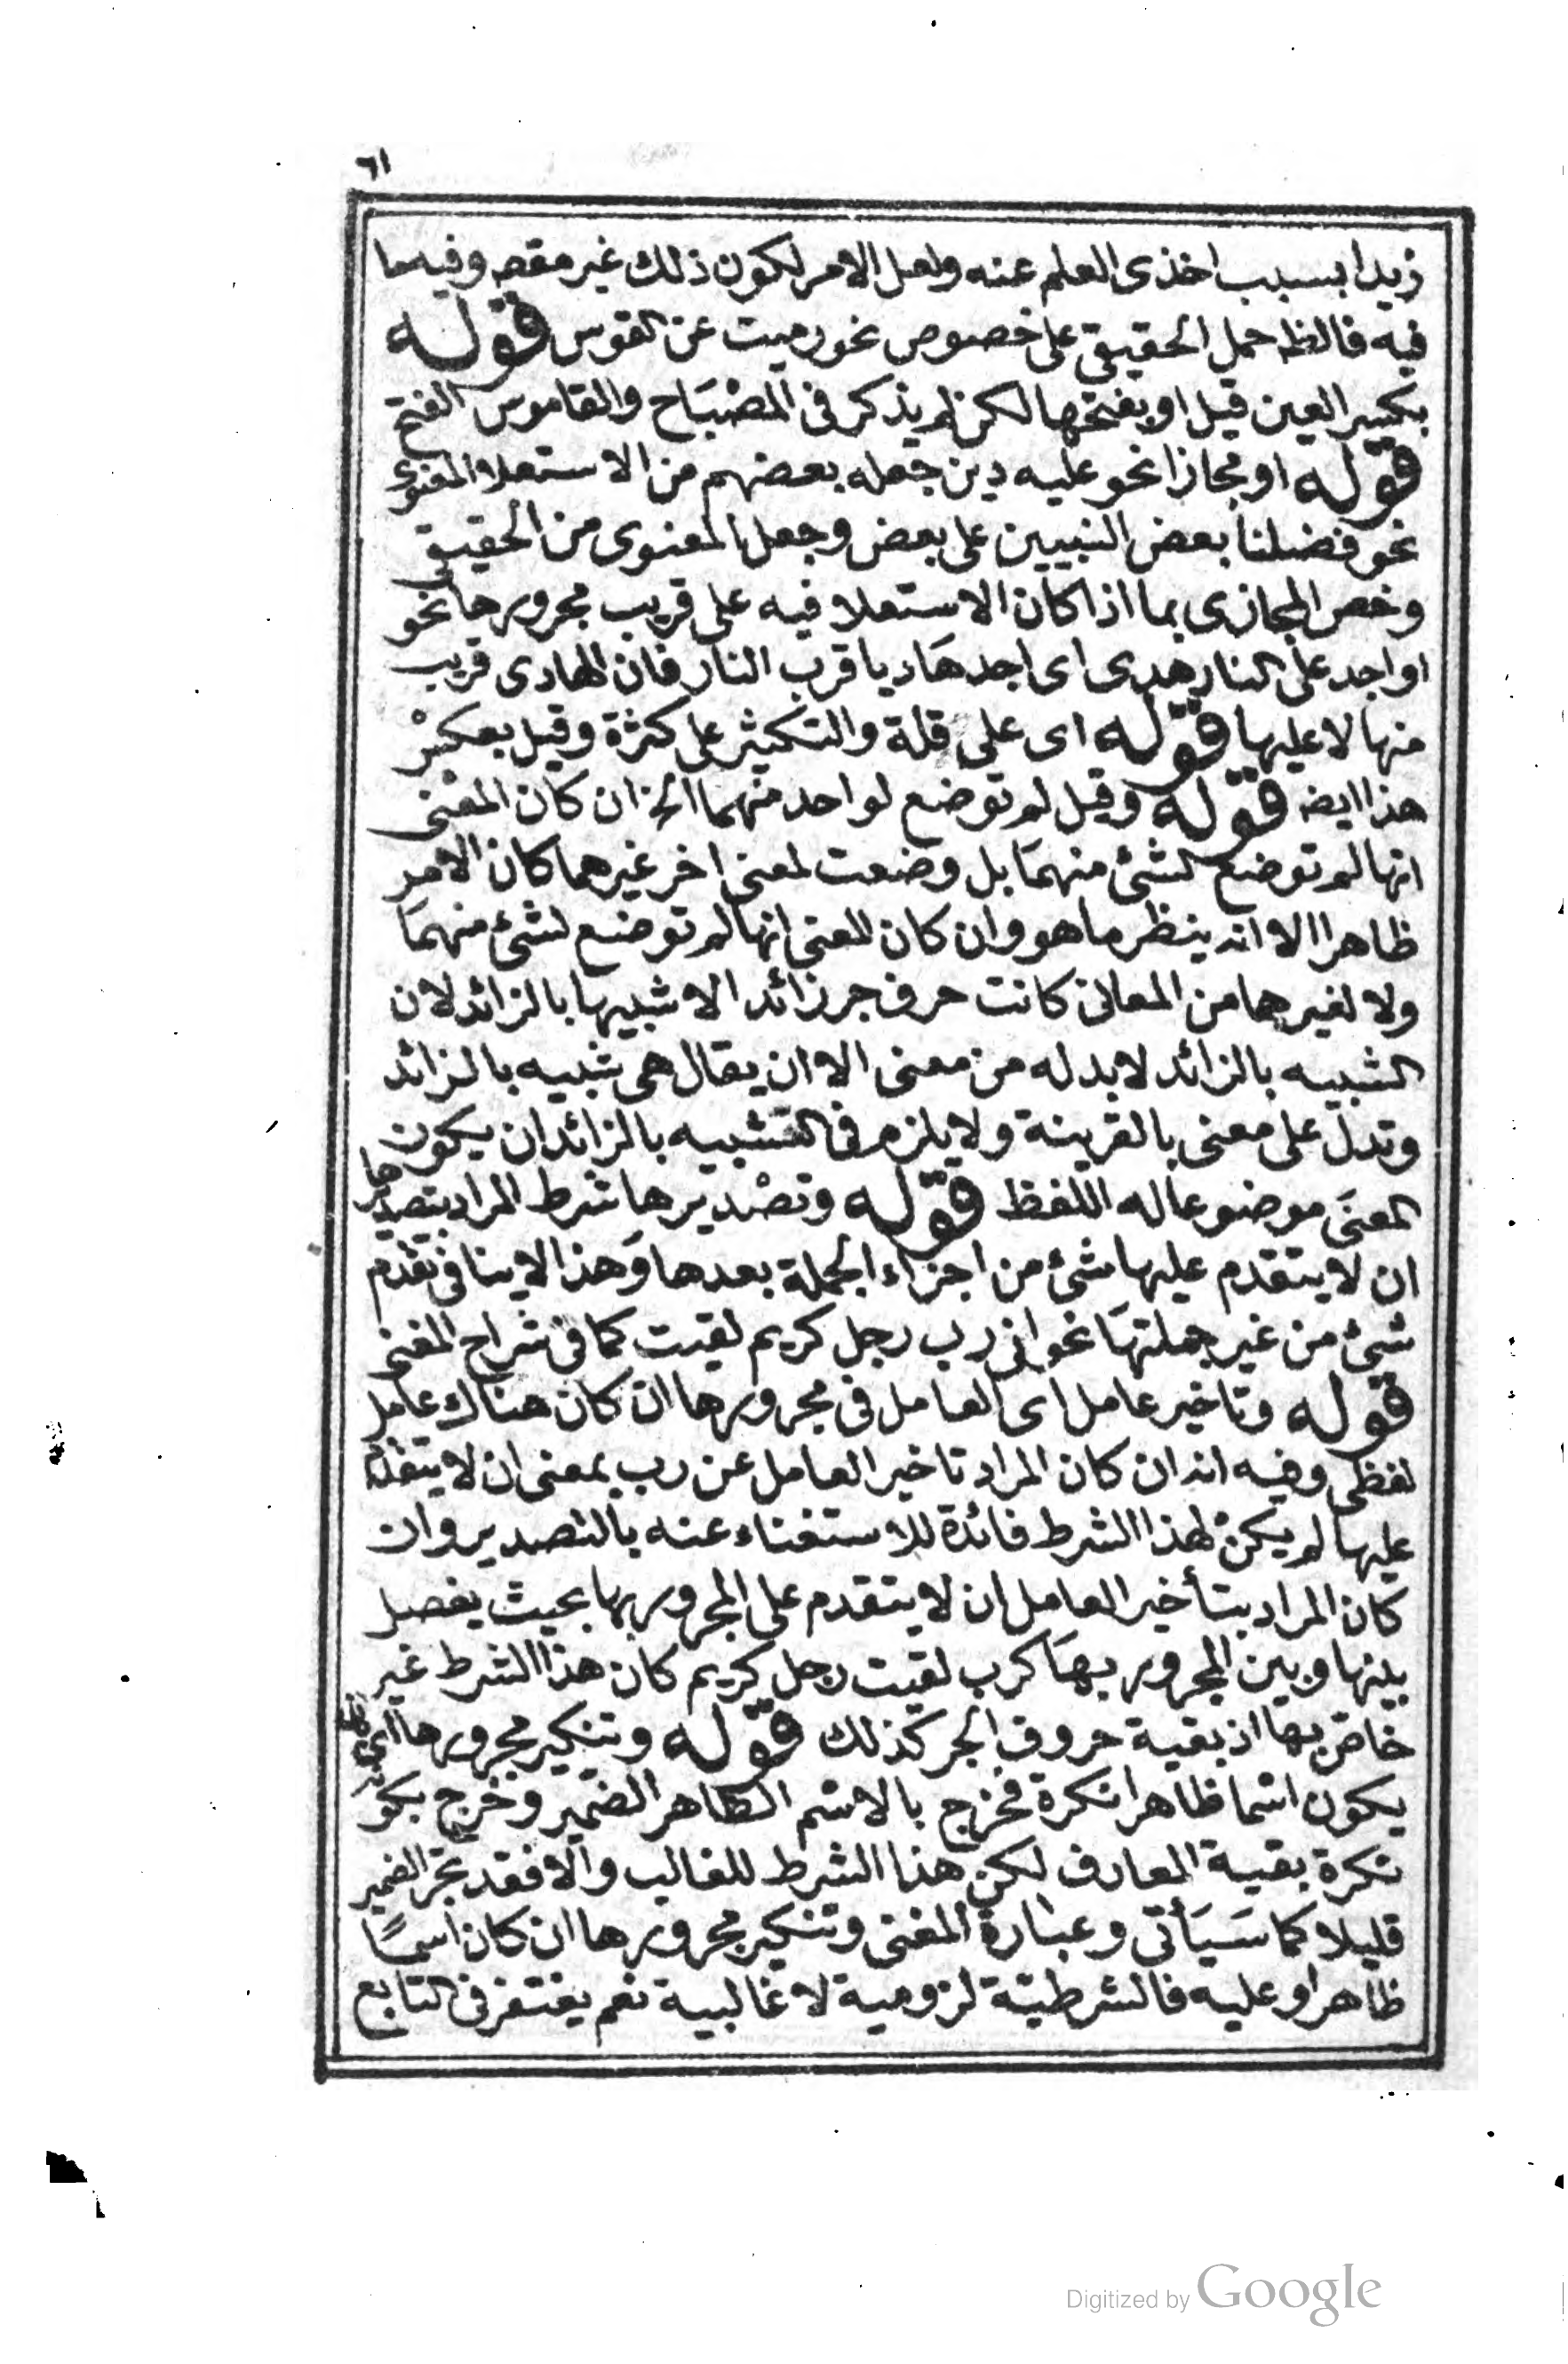 ٦١
زيدا بسبب اخذى العلم عنه ولعل الامر لكون ذلك غير مقصو فيما
فيه فالظ حمل الحقيقي على خصوص نحو رميت عن القوس قوله
بكسر العين قيل او بفتحها لكن لم يذكر فى المصْبَاح والقاموس الفتح
قوله او مجازا نحو عليه دين جعله بعضهم من الاستعلا المعنوى
نحو فضلنا بعض النبيين على بعض وجعل المعنوى من الحقيقى
وخص المجازى بما اذا كان الاستعلا فيه على قريب مجرورها نحو
او اجد على النار هدى اى اجد هَاديا قرب النار فان الهادى قريب
منها لا عليها قوله اى على قلة والتكثير على كثرة وقيل بعكسْ
هذا ايضه قوله وقيل لم توضع لواحد منهما الخ ان كان المعْنى
انها لم توضع لشئ منهمَا بل وضعت لمعنى اخر غيرهما كان الامر
ظاهرا الا انه ينظر ما هو وان كان المعنى انها لم توضع لشئ منهمَا
ولا لغيرهما من المعانى كانت حرف جر زائد الا شبيها بالزائد لان
الشبيه بالزائد لا بد له من معنى الا ان يقال هى شبيه بالزائد
وتدل على معنى بالقرينة ولا يلزم فى التشبيه بالزائد ان يكون
المعنَى موضوعا له اللفظ قوله وتصْديرها شرط المراد بتصديرها
ان لا يتقدم عليها شئ من اجزاء الجملة بعدها وَهذا لا ينافى تقدم
شئ من غير جملتهَا نحو انى رب رجل كريم لقيت كما فى شراح المغنى
قوله وتاخير عامل اى العامل فى مجرورها ان كان هناك عامل
لفظى وفيه انه ان كان المراد تاخير العامل عن رب بمعنى ان لا يتقدم
عليها لم يكنْ لهذا الشرط فائدة للاستغناء عنه بالتصدير وان
كان المراد بتأخير العامل ان لا يتقدم على المجرور بها بحيث يفصل
بينها وبين المجرور بهَا كرب لقيت رجل كريم كان هذا الشرط غير
خاص بها اذ بقية حروف الجر كذلك قوله وتنكير مجرورها اى
يكون اسْما ظاهرا نكرة فخرج بالاسْم الظاهر الضمير وخرج بكو
نكرة بقية المعارف لكن هذا الشرط للغالب والا فقد تجر الضمير
قليلا كما سَيَأتى وعبارة المغنى وتنكير مجرورها ان كان اسمًا
ظاهرا وعليه فالشرطيّة لزومية لا غالبية نعم يغتفر فى التابع
Digitized by Google